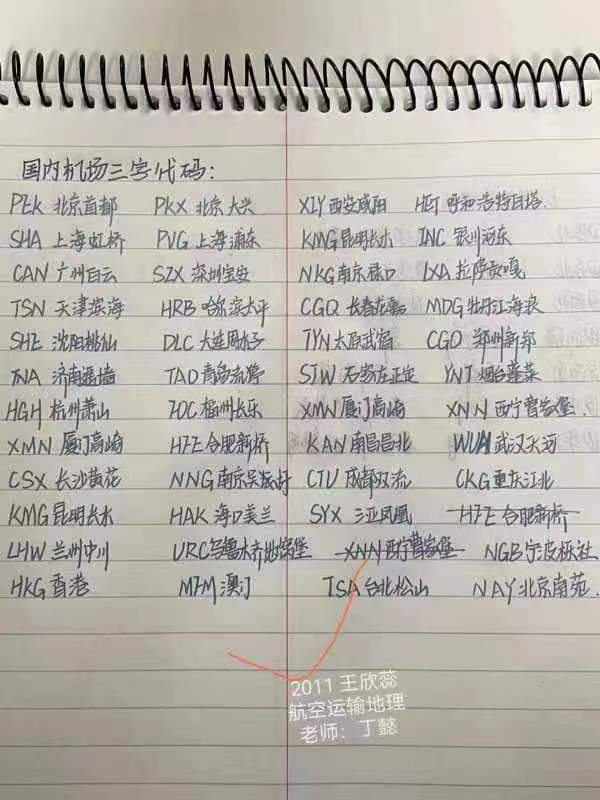 国内机场三字代码:
PEK 北京首都 PKX 北京大兴 XIY 西安咸阳 HET 呼和浩特白塔
SHA 上海虹桥 PVG 上海浦东 KMG 昆明长水 INC 银川河东
CAN 广州白云 SZX 深圳宝安 NKG 南京禄口 LXA 拉萨贡嘎
TSN 天津滨海 HRB 哈尔滨太平 CGQ 长春龙嘉 MDG 牡丹江海浪
SHE 沈阳桃仙 DLC 大连周水子 TYN 太原武宿 CGO 郑州新郑
TNA 济南遥墙 TAO 青岛流亭 SJW 石家庄正定 YNT 烟台蓬莱
HGH 杭州萧山 FOC 福州长乐 XMN 厦门高崎 XNN 西宁曹家堡.
XMN 厦门高崎 HFE 合肥新桥 KAN 南昌昌北 WUH 武汉天河
CSX 长沙黄花 NNG 南京吴圩 CTU 成都双流 CKG 重庆江北
KMG 昆明长水 HAK 海口美兰 SYX 三亚凤凰 HFE 合肥新桥
LHW 兰州中川 URC 乌鲁木齐地窝堡 XNN 西宁曹家堡 NGB 宁波栎社
HKG 香港 MFM 澳门 TSA 台北松山 NAY 北京南苑.
2011 王欣蕊
航空运输地理
老师：丁懿